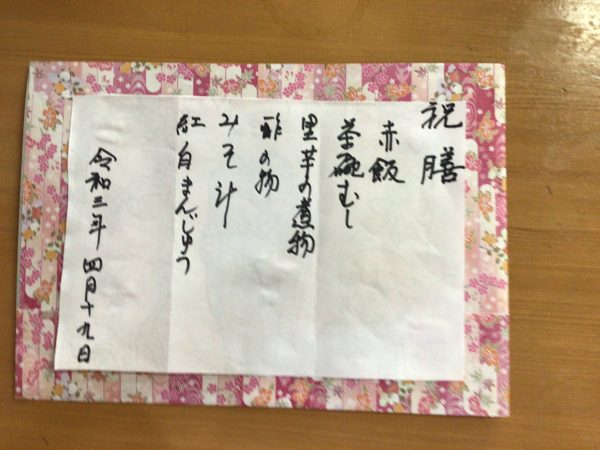 祝膳
赤飯
茶碗むし
里芋の煮物
酢の物
みそ汁
紅白まんじゅう
令和三年四月十九日